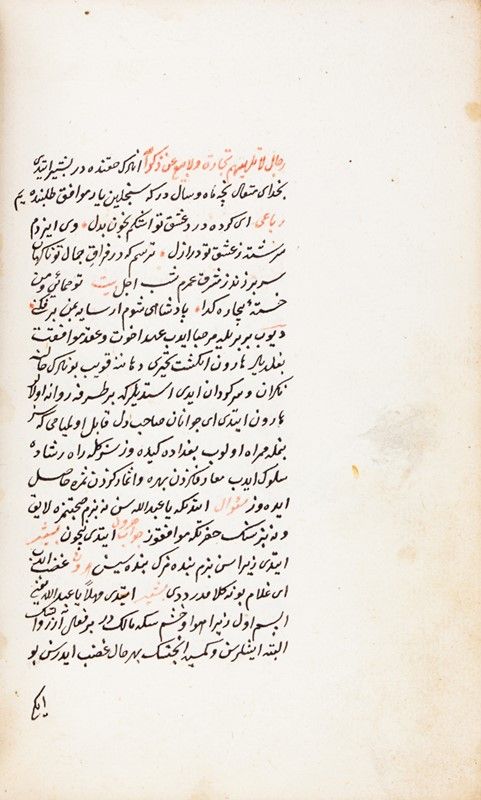 رجال لا تلهیهم تجارة ولا بیع عن ذکر الله انلرک حقنده در بشیر ایتدی
بخدای متعال نچه ماه و سال درکه سنجلین یار موافق طلبنده یم
رباعی ای کرده در د عشق تو اشکم بخون بدل وی ایزدم
سرشته ز عشق تو در ازل ترسم که در فراق جمال تو ناکهان
سر برزند ز مشرق عمرم شب اجل بیت تو همائی و من
خسته بیچاره کدا پادشاهی شوم ار سایه بمن بر فکنی
دیوب بربریله مرحبا ایدب عقد اخوت و عهد موافقت
بغلدیلر هارون انکشت تحیری دهاننه قویب بونلرک حالنه
نکران و سرکردان ایدی استدیلرکه بر طرفه روانه اولالر
هارون ایتدی ای جوانان صاحب دل قابل اولیامی که سز
بنمله همراه اولوب بغداده کیده وز سزوکله راه رشاده
سلوک ایدب معارفکزدن بهره و انفاسکزدن ثمره حاصل
ایده وز سئوال ایتدیکه یا عبدالله سن نه بزم صحبتمزه لایق
و نه بز سنک حضرتکه موافقوز جواب هرون ایتدی نچون بشیر
ایتدی زیرا سن بزم بنده مزک بنده سیسن هرون غضب ایدب
ای غلام بو نه کلامدر ددی بشیر ایتدی مهلا یا عبدالله یعنی
ابسم اول زیرا هوا و خشم سکه مالک در هر نه فعال آرزو ایتسک
البته ایشلرسن و کمسیه انجنسک بهر حال غضب ایدرسن بو
ایکی